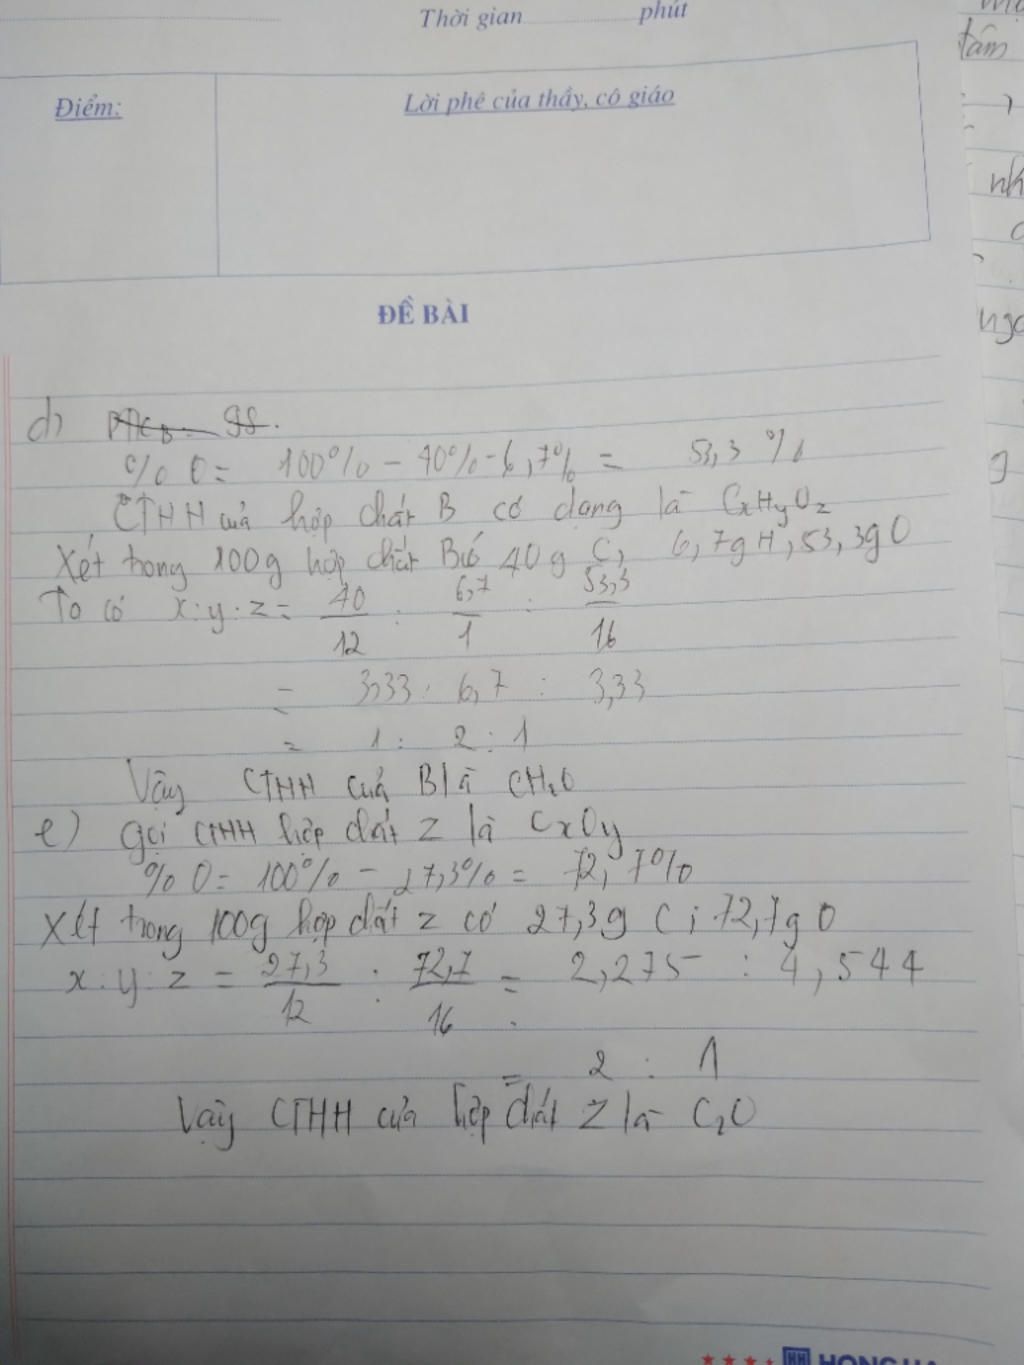 Thời gian phút
Điểm:
Lời phê của thầy, cô giáo
ĐỀ BÀI
d) PTK_B = 98.
% O = 100% - 40% - 6,7% = 53,3 %
CTHH của hợp chất B có dạng là CxHyOz
Xét trong 100g hợp chất B có 40g C, 6,7g H, 53,3g O
Ta có x : y : z = 40/12 : 6,7/1 : 53,3/16
= 3,33 : 6,7 : 3,33
= 1 : 2 : 1
Vậy CTHH của B là CH2O
e) gọi CTHH hợp chất Z là CxOy
% O = 100% - 27,3% = 72,7%
Xét trong 100g hợp chất Z có 27,3g C ; 72,7g O
x : y : z = 27,3/12 : 72,7/16 = 2,275 : 4,544
= 2 : 1
Vậy CTHH của hợp chất Z là C2O
tâm
nh
ngo
g
HH